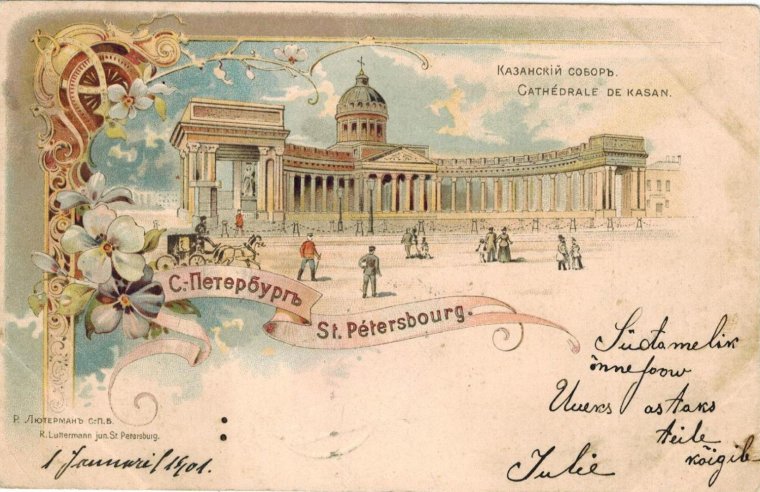 КАЗАНСКІЙ СОБОРЪ.
CATHÉDRALE DE KASAN.
С.-Петербургъ
St. Pétersbourg.
Südamelik
õnnesoow
Uueks astaks
teile
kõigile
Julie
Р. ЛЮТЕРМАНЪ С.П.Б.
R. Luttermann jun. St. Petersburg.
1 Januaril 1901.